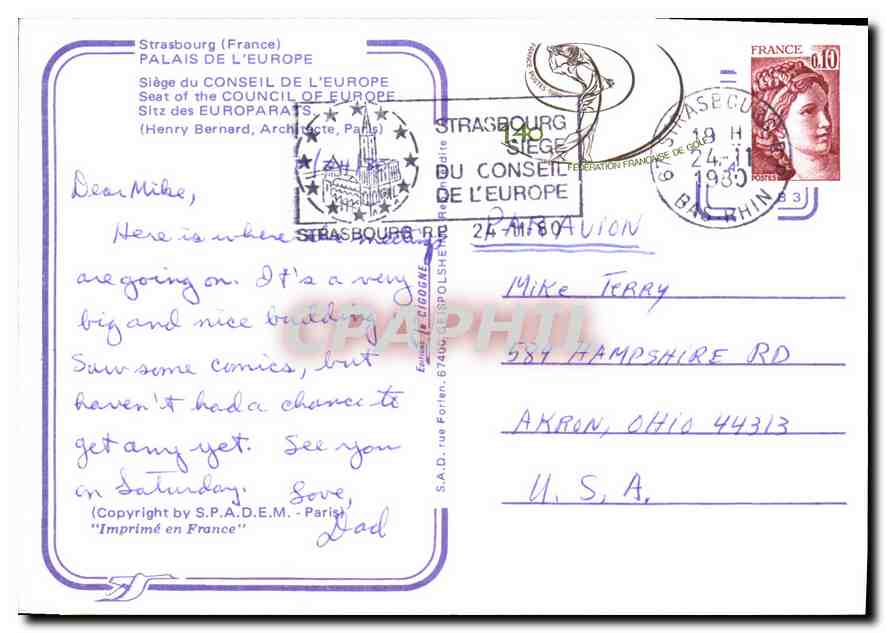 Strasbourg (France)
PALAIS DE L'EUROPE
Siège du CONSEIL DE L'EUROPE
Seat of the COUNCIL OF EUROPE
Sitz des EUROPARATS
(Henry Bernard, Architecte, Paris)
Dear Mike,
Here is where the meetings
are going on. It's a very
big and nice building
Saw some comics, but
haven't had a chance to
get any yet. See you
on Saturday.
Love,
Dad
(Copyright by S.P.A.D.E.M. - Paris)
"Imprimé en France"
STRASBOURG
SIEGE
DU CONSEIL
DE L'EUROPE
STRASBOURG R.P. 24-11-80
Editions la CIGOGNE
S.A.D. rue Forlen, 67400 GEISPOLSHEIM Reproduction interdite
1,40
FEDERATION FRANCAISE DE GOLF
FRANCE
0,10
POSTES
67 STRASBOURG R.P.
19 H
24-11
1980
BAS-RHIN
83
PAR AVION
MIKE TERRY
584 HAMPSHIRE RD
AKRON, OHIO 44313
U.S.A.
CPAPHIL